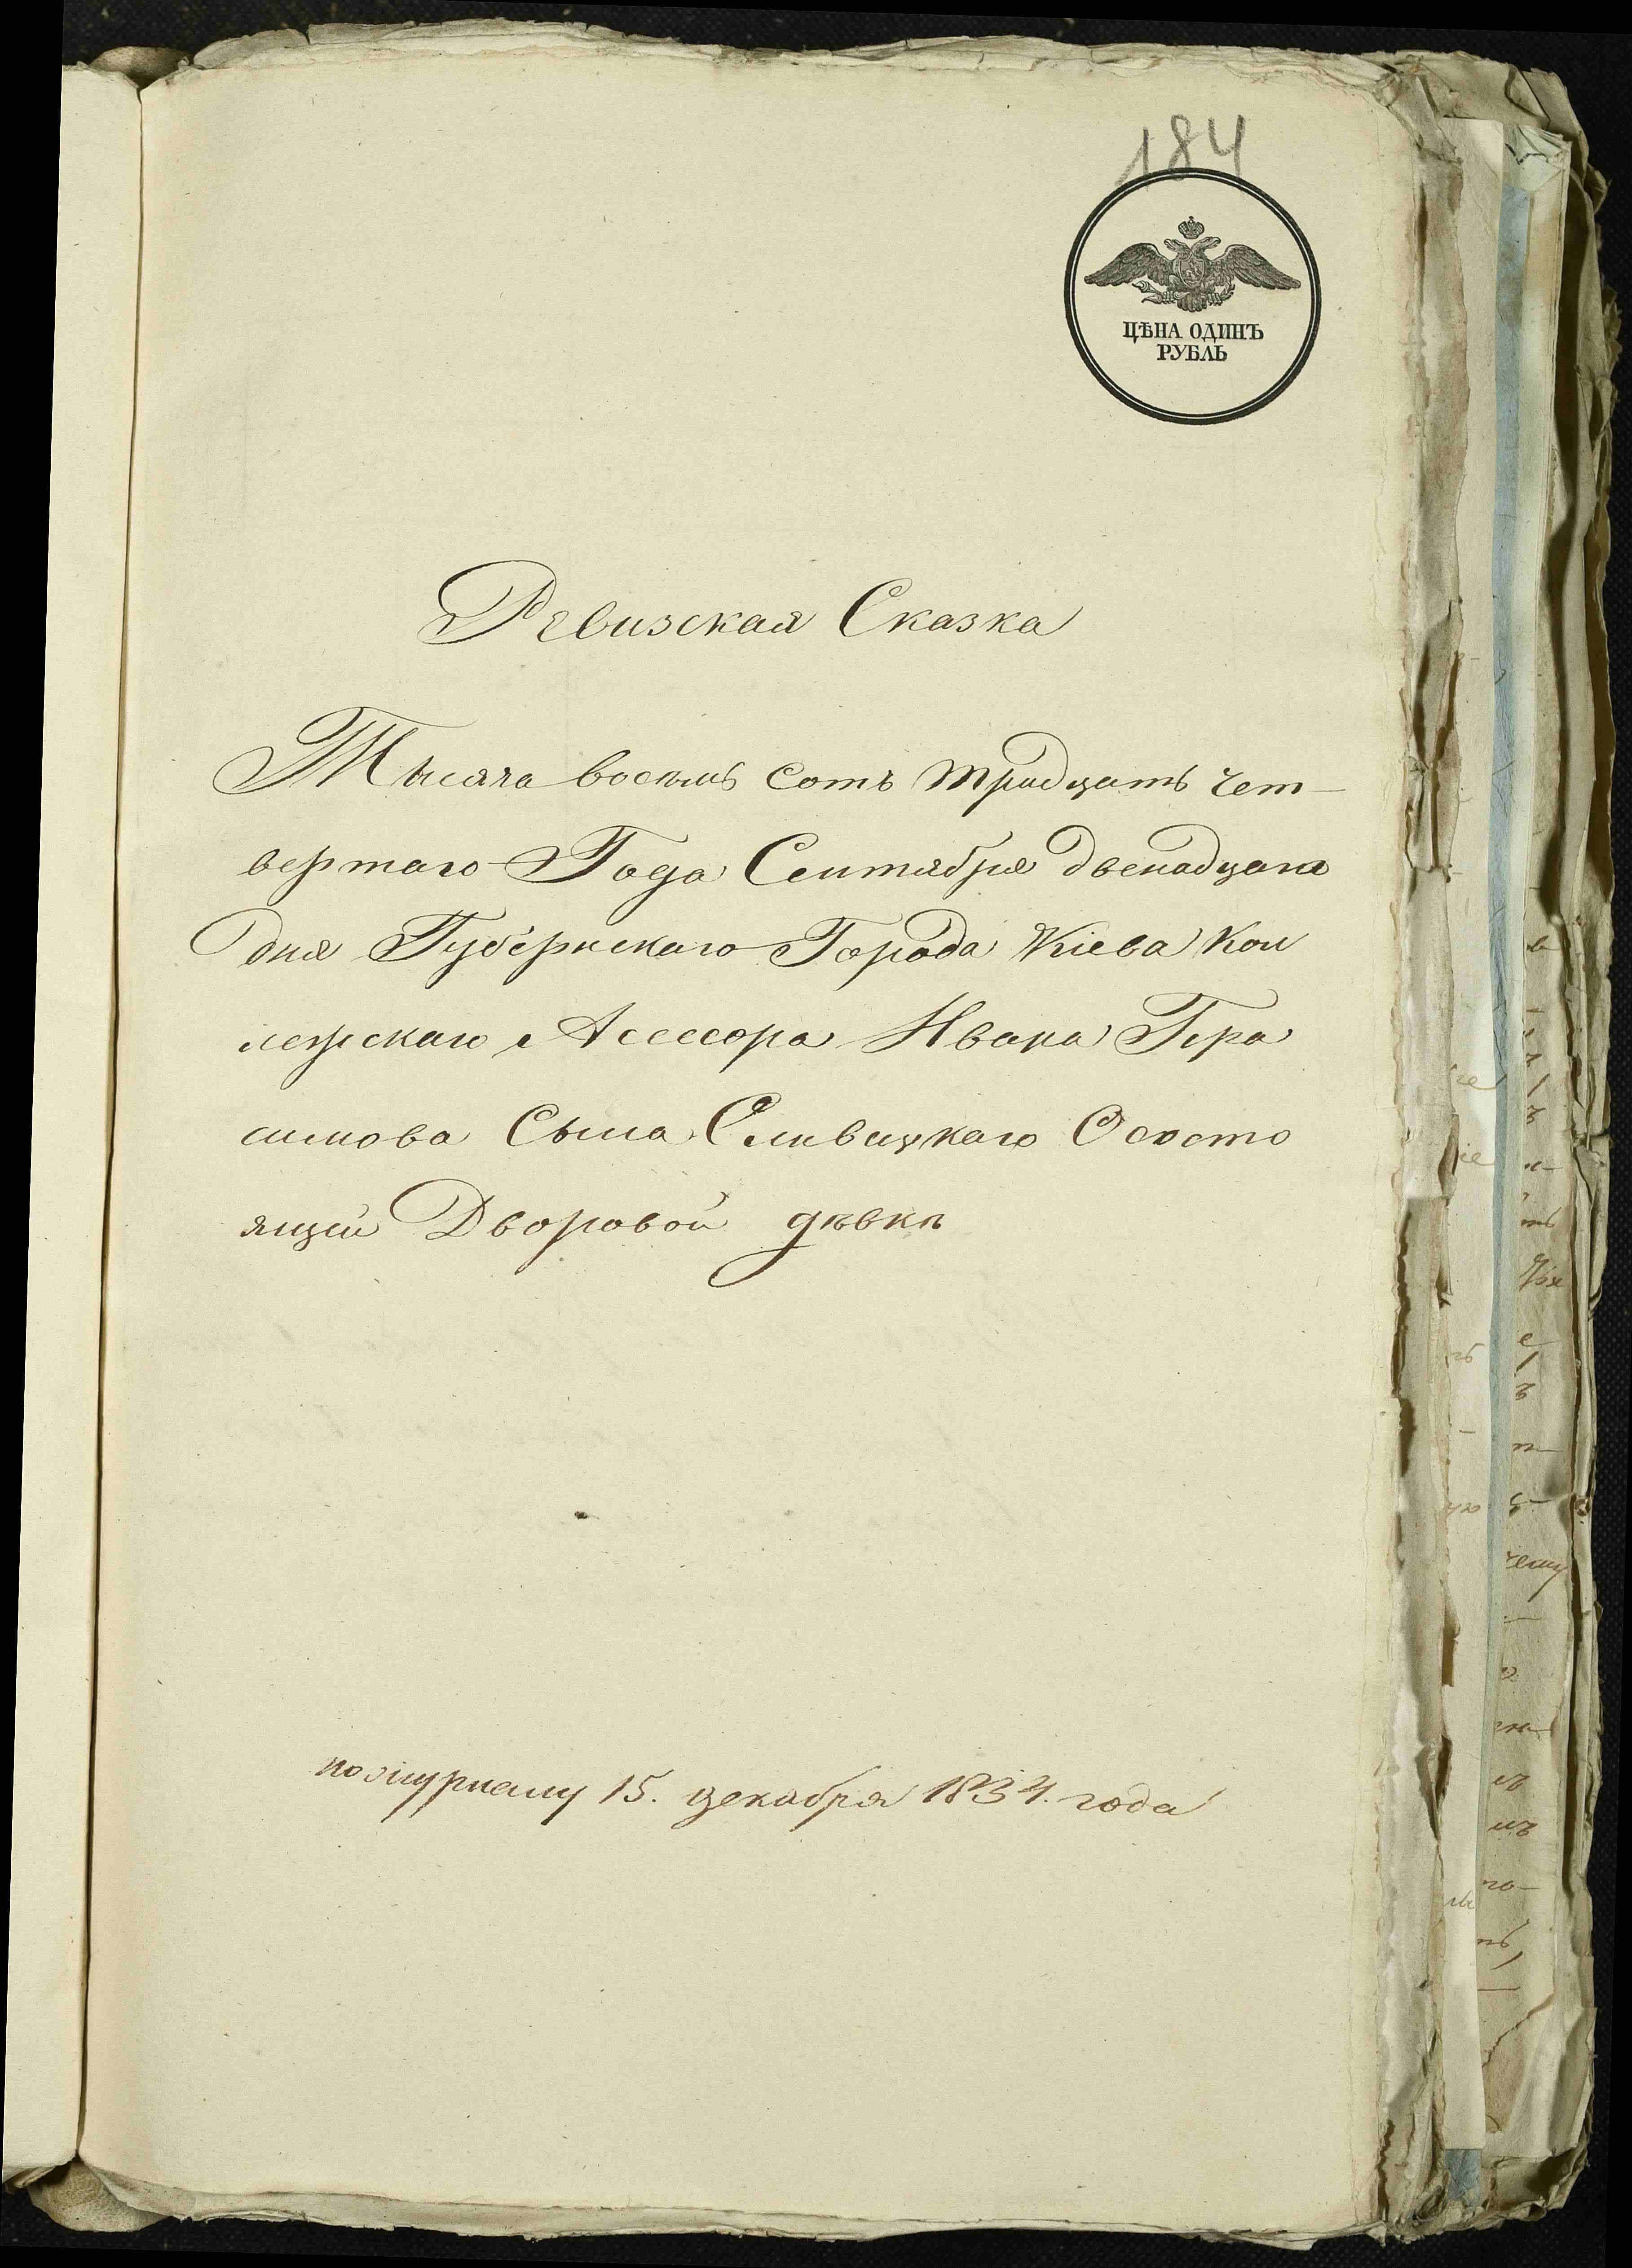 184
ЦѢНА ОДИНЪ
РУБЛЬ
Ревизская Сказка
Тысяча восемь сотъ тридцать чет-
вертаго Года Сентября двенадцата
дня Губернскаго Города Кіева Кол
лежскаго Асессора Ивана Гера
симова Сына Сливицкаго О состо
ящей Дворовой дѣвкѣ
15. декабря 1834. года